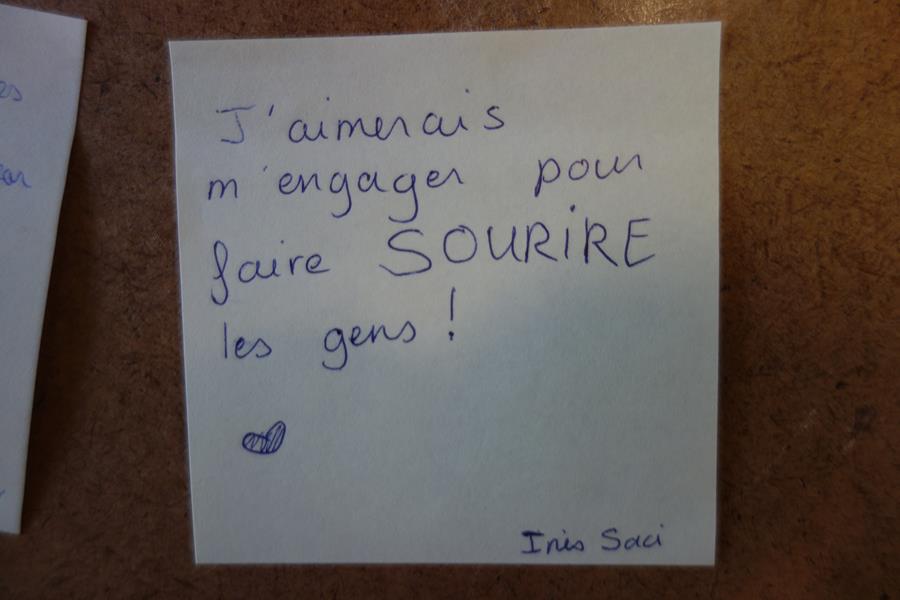 J'aimerais
m'engager pour
faire SOURIRE
les gens !
Inès Saci